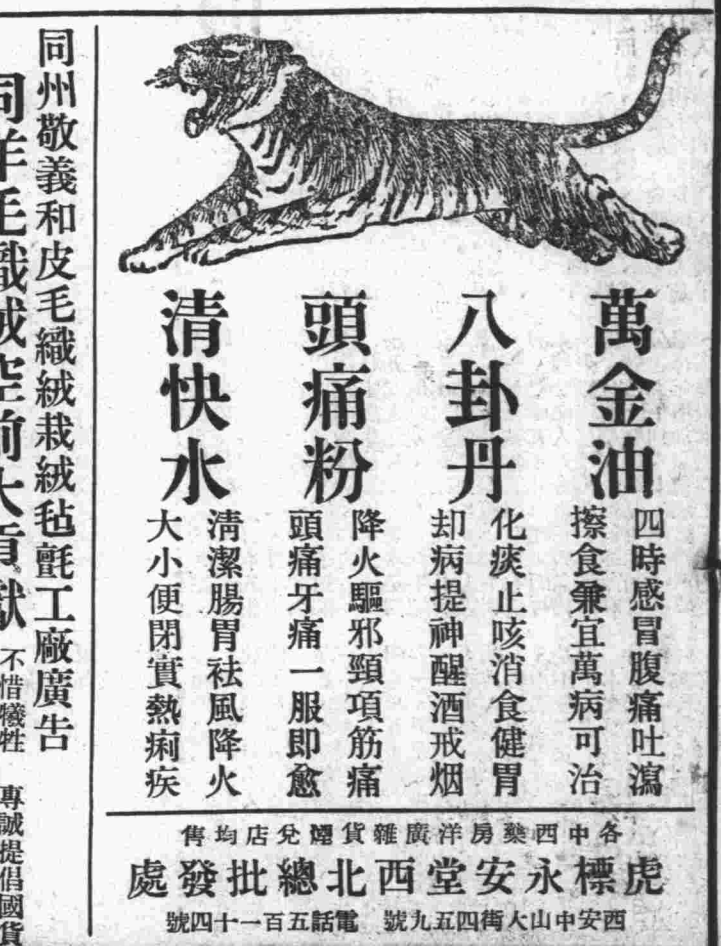 萬金油
四時感冒腹痛吐瀉
擦食兼宜萬病可治
八卦丹
化痰止咳消食健胃
却病提神醒酒戒烟
頭痛粉
降火驅邪頸項筋痛
頭痛牙痛一服即愈
清快水
清潔腸胃祛風降火
大小便閉實熱痢疾
各中西藥房洋廣雜貨烟兌店均售
虎標永安堂西北總批發處
西安中山大街四五九號 電話五百一十四號
同州敬義和皮毛織絨栽絨毡氈工廠廣告
同羊毛織絨空前大貢獻
不惜犧牲 專誠提倡國貨